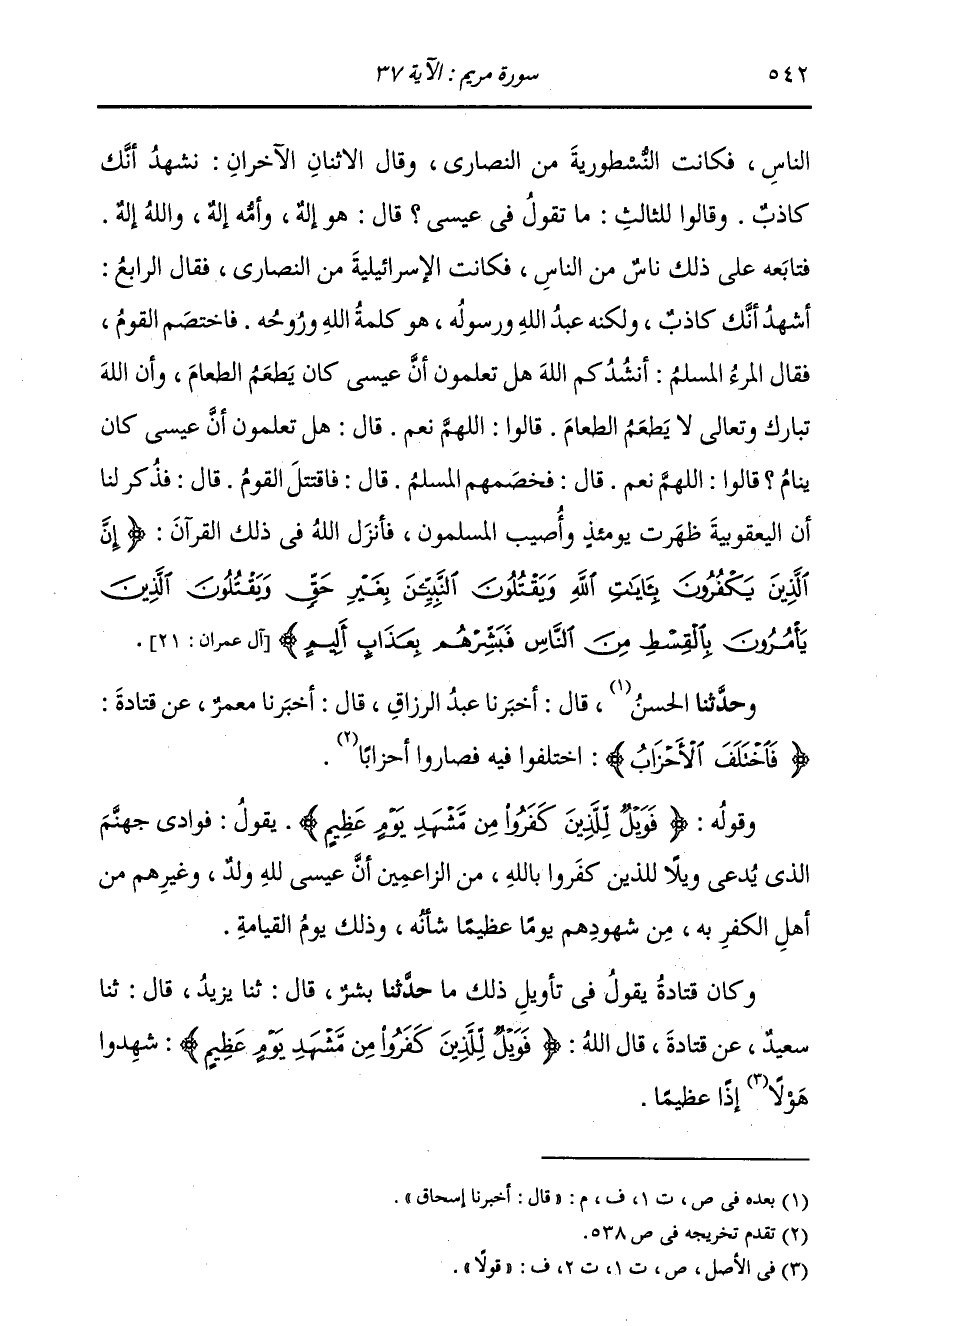 ٥٤٢ سورة مريم : الآية ٣٧
الناسِ ، فكانت النُّسْطوريةَ من النصارى ، وقال الاثنانِ الآخرانِ : نشهدُ أنَّك
كاذبٌ . وقالوا للثالثِ : ما تقولُ فى عيسى ؟ قال : هو إلهٌ ، وأمُّه إلهٌ ، واللهُ إلهٌ .
فتابَعه على ذلك ناسٌ من الناسِ ، فكانت الإسرائيليةَ من النصارى ، فقال الرابعُ :
أشهدُ أنَّك كاذبٌ ، ولكنه عبدُ اللهِ ورسولُه ، هو كلمةُ اللهِ ورُوحُه . فاختصَم القومُ ،
فقال المرءُ المسلمُ : أنشُدُكم اللهَ هل تعلمون أنَّ عيسى كان يَطعَمُ الطعامَ ، وأن اللهَ
تبارك وتعالى لا يَطعَمُ الطعامَ . قالوا : اللهمَّ نعم . قال : هل تعلمون أنَّ عيسى كان
ينامُ ؟ قالوا : اللهمَّ نعم . قال : فخصَمهم المسلمُ . قال : فاقتتلَ القومُ . قال : فذُكر لنا
أن اليعقوبيةَ ظهَرت يومئذٍ وأُصيب المسلمون ، فأنزَل اللهُ فى ذلك القرآنَ : ﴿ إِنَّ
ٱلَّذِينَ يَكْفُرُونَ بِـَٔايَٰتِ ٱللَّهِ وَيَقْتُلُونَ ٱلنَّبِيِّـۧنَ بِغَيْرِ حَقٍّ وَيَقْتُلُونَ ٱلَّذِينَ
يَأْمُرُونَ بِٱلْقِسْطِ مِنَ ٱلنَّاسِ فَبَشِّرْهُم بِعَذَابٍ أَلِيمٍ ﴾ [آل عمران : ٢١] .
وحدَّثنا الحسنُ(١) ، قال : أخبَرنا عبدُ الرزاقِ ، قال : أخبَرنا معمرٌ ، عن قتادةَ :
﴿ فَٱخْتَلَفَ ٱلْأَحْزَابُ ﴾ : اختلفوا فيه فصاروا أحزابًا(٢) .
وقولُه : ﴿ فَوَيْلٌ لِّلَّذِينَ كَفَرُوا۟ مِن مَّشْهَدِ يَوْمٍ عَظِيمٍ ﴾ . يقولُ : فوادى جهنَّمَ
الذى يُدعى ويلًا للذين كفَروا باللهِ ، من الزاعمِين أنَّ عيسى للهِ ولدٌ ، وغيرِهم من
أهلِ الكفرِ به ، مِن شهودِهم يومًا عظيمًا شأنُه ، وذلك يومُ القيامةِ .
وكان قتادةُ يقولُ فى تأويلِ ذلك ما حدَّثنا بشرٌ ، قال : ثنا يزيدُ ، قال : ثنا
سعيدٌ ، عن قتادةَ ، قال اللهُ : ﴿ فَوَيْلٌ لِّلَّذِينَ كَفَرُوا۟ مِن مَّشْهَدِ يَوْمٍ عَظِيمٍ ﴾ : شهِدوا
هَوْلًا(٣) إذًا عظيمًا .
(١) بعده فى ص ، ت ١، ف ، م : « قال : أخبرنا إسحاق » .
(٢) تقدم تخريجه فى ص ٥٣٨.
(٣) فى الأصل ، ص ، ت ١، ت ٢، ف : « قولًا » .